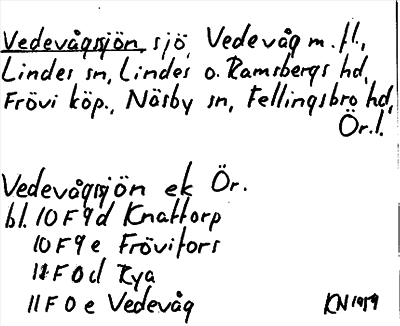 Vedevågsjön, sjö, Vedevåg m. fl.,
Lindes sn, Lindes o. Ramsbergs hd,
Frövi köp., Näsby sn, Fellingsbro hd,
Ör. l.
Vedevågsjön ek Ör.
bl. 10 F 9 d Knattorp
10 F 9 e Frövifors
11 F 0 d Rya
11 F 0 e Vedevåg
KN 1959